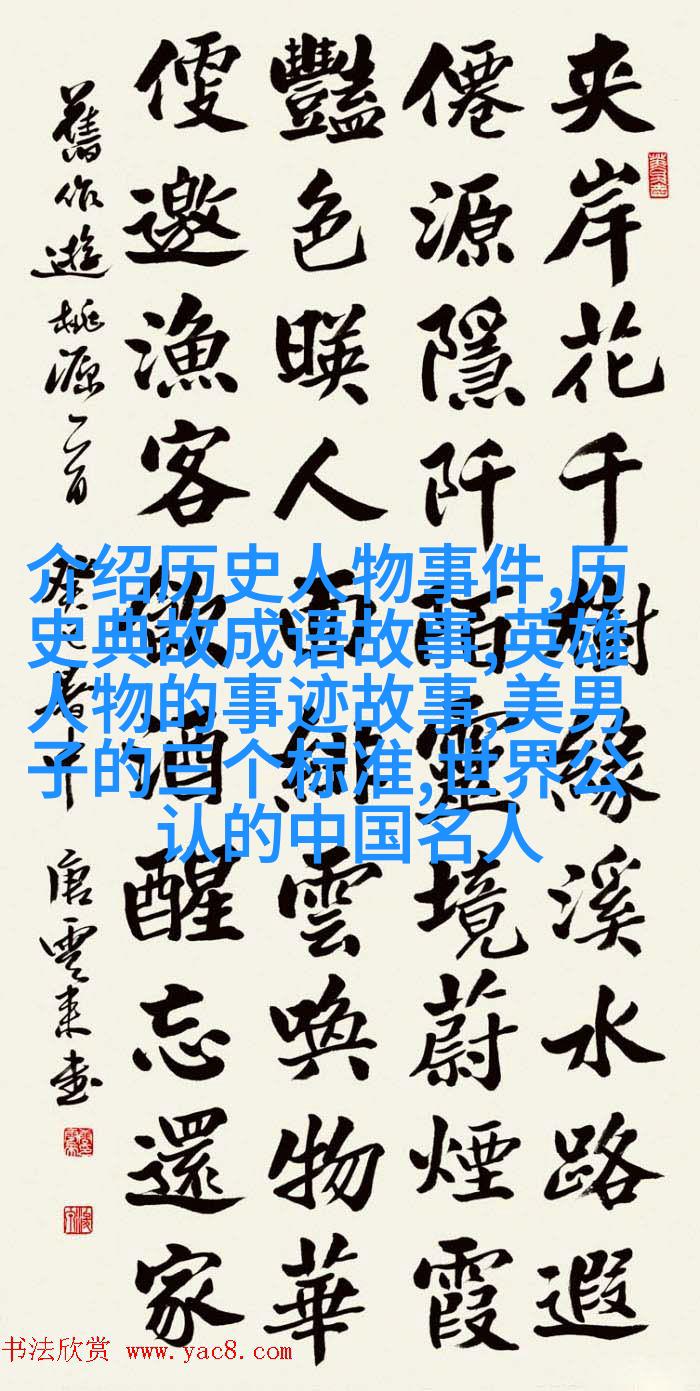 夹岸花千樹緣溪水路遐
僊源隱阡陌靈境蔚煙霞
豔色暎人面緋雲喚物華
便邀漁客飲酒醒忘還家
舊作遊桃源二首 癸巳暑中 唐雲来書
介绍历史人物事件,历
史典故成语故事,英雄
人物的事迹故事,美男
子的三个标准,世界公
认的中国名人
书法欣赏 www.yac8.com